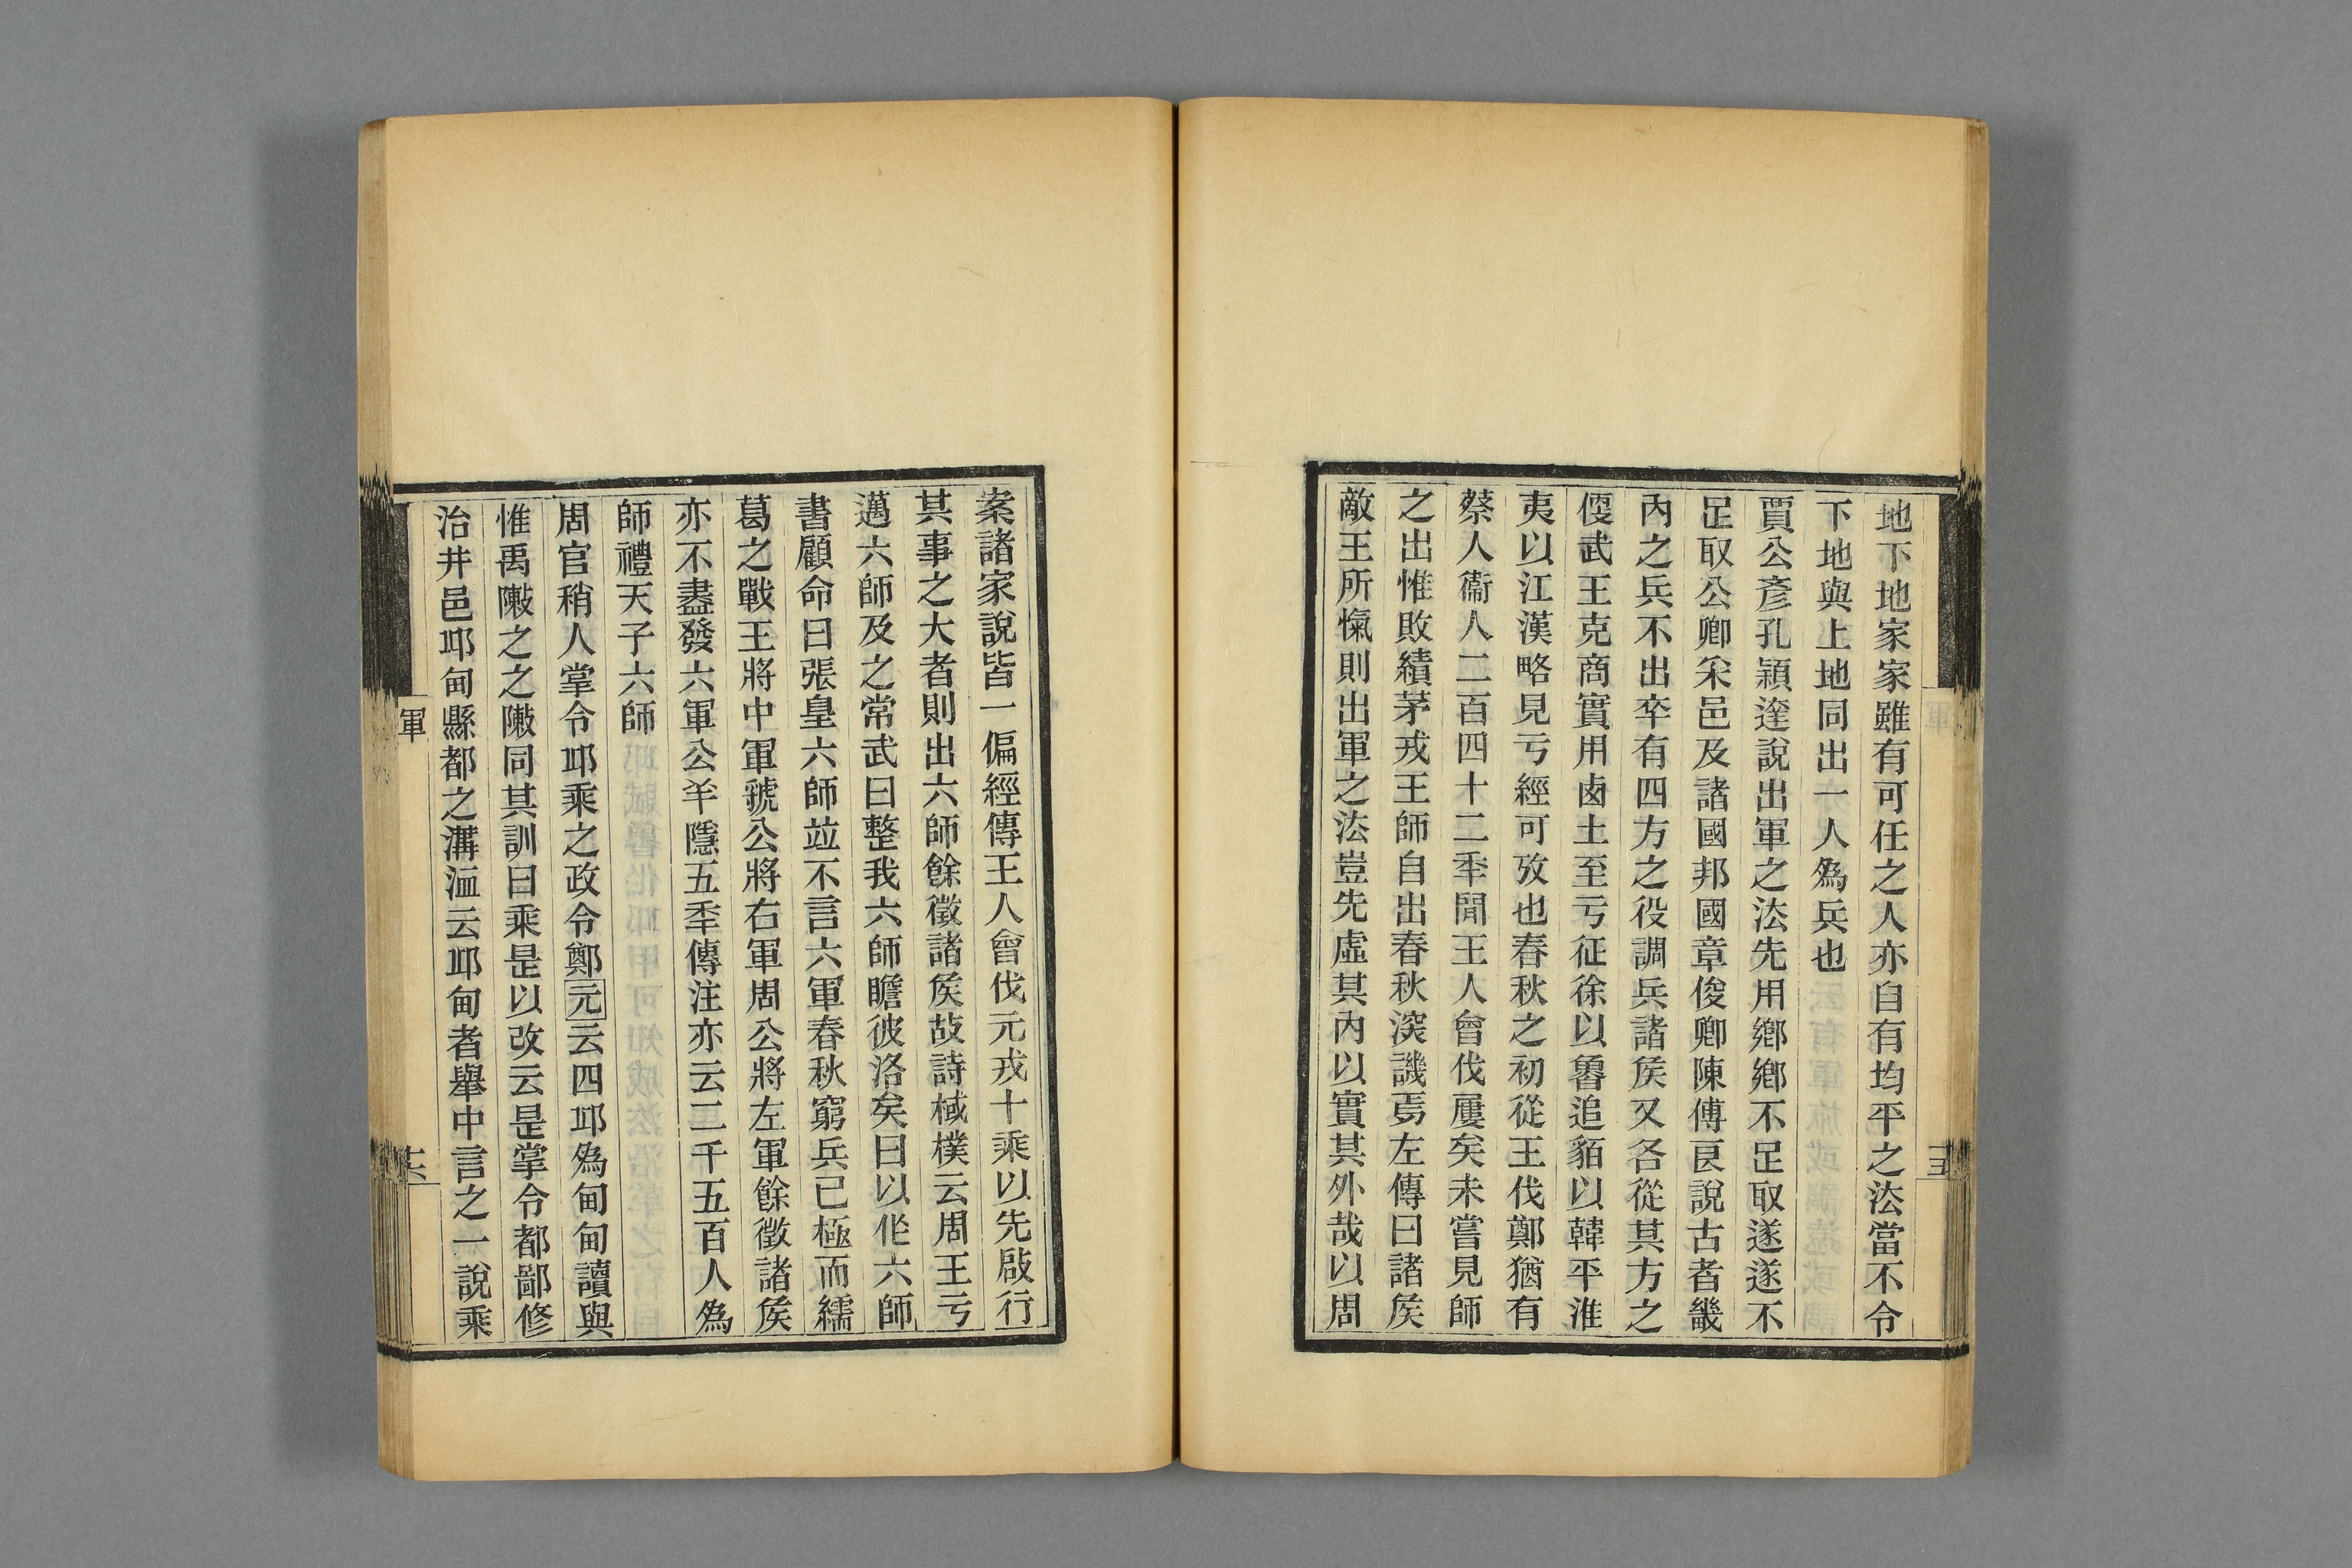 地下地家家雖有可任之人亦自有均平之法當不令
下地與上地同出一人爲兵也
賈公彥孔穎達說出軍之法先用鄉鄉不足取遂遂不
足取公卿采邑及諸國邦國章俊卿陳傅良說古者畿
內之兵不出卒有四方之役調兵諸矦又各從其方之
便武王克商實用鹵土至亏征徐以魯追貊以韓平淮
夷以江漢略見亏經可攷也春秋之初從王伐鄭猶有
蔡人衞人二百四十二秊閒王人會伐屢矣未嘗見師
之出惟敗績茅戎王師自出春秋深譏焉左傳曰諸矦
敵王所愾則出軍之法豈先虛其內以實其外哉以周
案諸家說皆一偏經傳王人會伐元戎十乘以先啟行
其事之大者則出六師餘徵諸矦故詩棫樸云周王亏
邁六師及之常武曰整我六師瞻彼洛矣曰以作六師
書顧命曰張皇六師竝不言六軍春秋窮兵已極而繻
葛之戰王將中軍虢公將右軍周公將左軍餘徵諸矦
亦不盡發六軍公羊隱五秊傳注亦云二千五百人爲
師禮天子六師
周官稍人掌令邱乘之政令鄭元云四邱爲甸甸讀與
惟禹敶之之敶同其訓曰乘是以改云是掌令都鄙修
治井邑邱甸縣都之溝洫云邱甸者舉中言之一說乘
軍